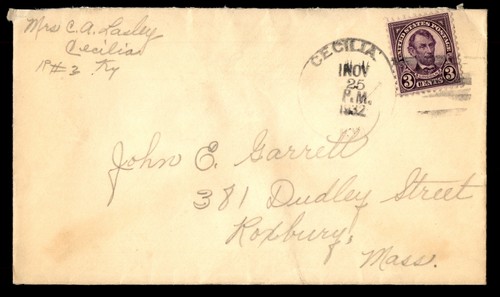 Mrs C. A. Lasley
Cecilia
R#3 Ky
CECILIA
NOV
25
P.M.
1932
UNITED STATES POSTAGE
3 CENTS 3
John E. Garrett
381 Dudley Street
Roxbury,
Mass.